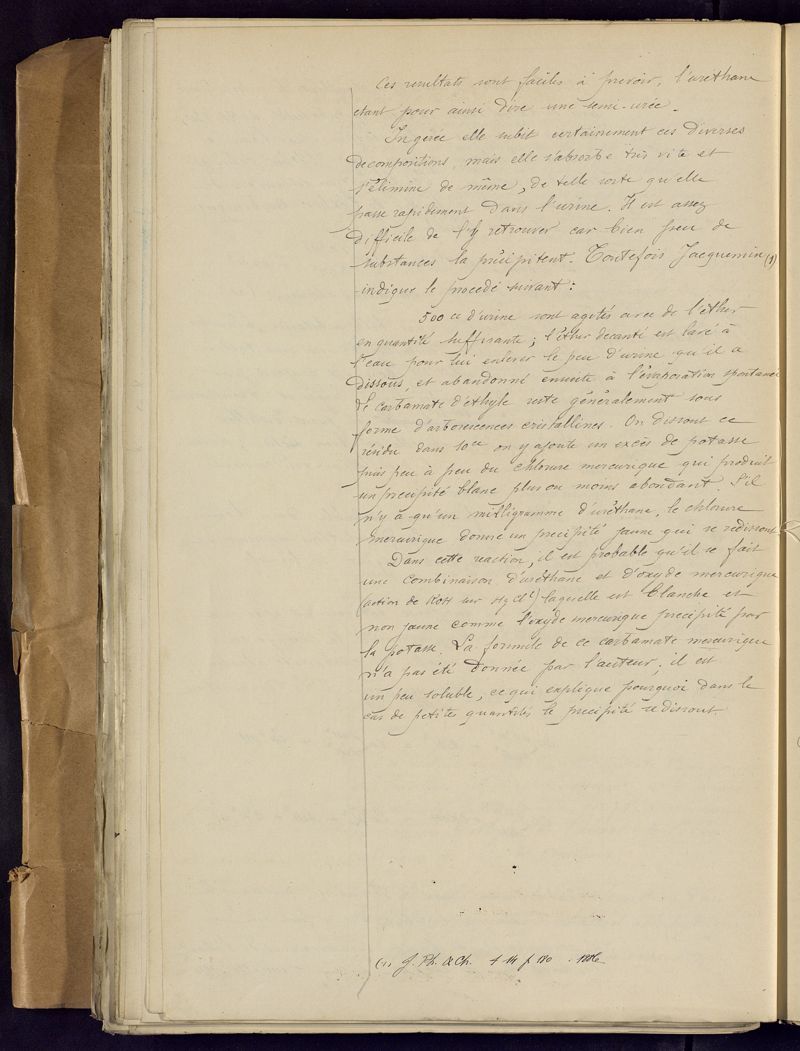 Ces resultats sont faciles à prevoir, l'uréthane
etant pour ainsi dire une semi-urée.
Ingérée elle subit certainement ces diverses
decompositions, mais elle s'absorbe très vite et
s'élimine de même, de telle sorte qu'elle
passe rapidement dans l'urine. Il est assez
difficile de l'y retrouver car bien peu de
substances la précipitent. Toutefois Jacquemin (1)
indique le procedé suivant :
500 cc d'urine sont agités avec de l'éther
en quantité suffisante ; l'éther decanté est lavé à
l'eau pour lui enlever le peu d'urine qu'il a
dissous, et abandonné ensuite à l'évaporation spontanée
Le carbamate d'éthyle reste généralement sous
forme d'arborescences cristallines. On dissout ce
résidu dans 10cc on y ajoute un excès de potasse
puis peu à peu du chlorure mercurique qui produit
un precipité blanc plus ou moins abondant. S'il
n'y a qu'un milligramme d'uréthane, le chlorure
mercurique donne un precipité jaune qui se redissout
Dans cette reaction, il est probable qu'il se fait
une combinaison d'uréthane et d'oxyde mercurique
(action de KOH sur HgCl²) laquelle est blanche et
non jaune comme l'oxyde mercurique precipité par
la potasse. La formule de ce carbamate mercurique
n'a pas été donnée par l'auteur ; il est
un peu soluble, ce qui explique pourquoi dans le
cas de petites quantités le precipité se dissout.
(1) J. Ph. & Ch. t 14 p 1886